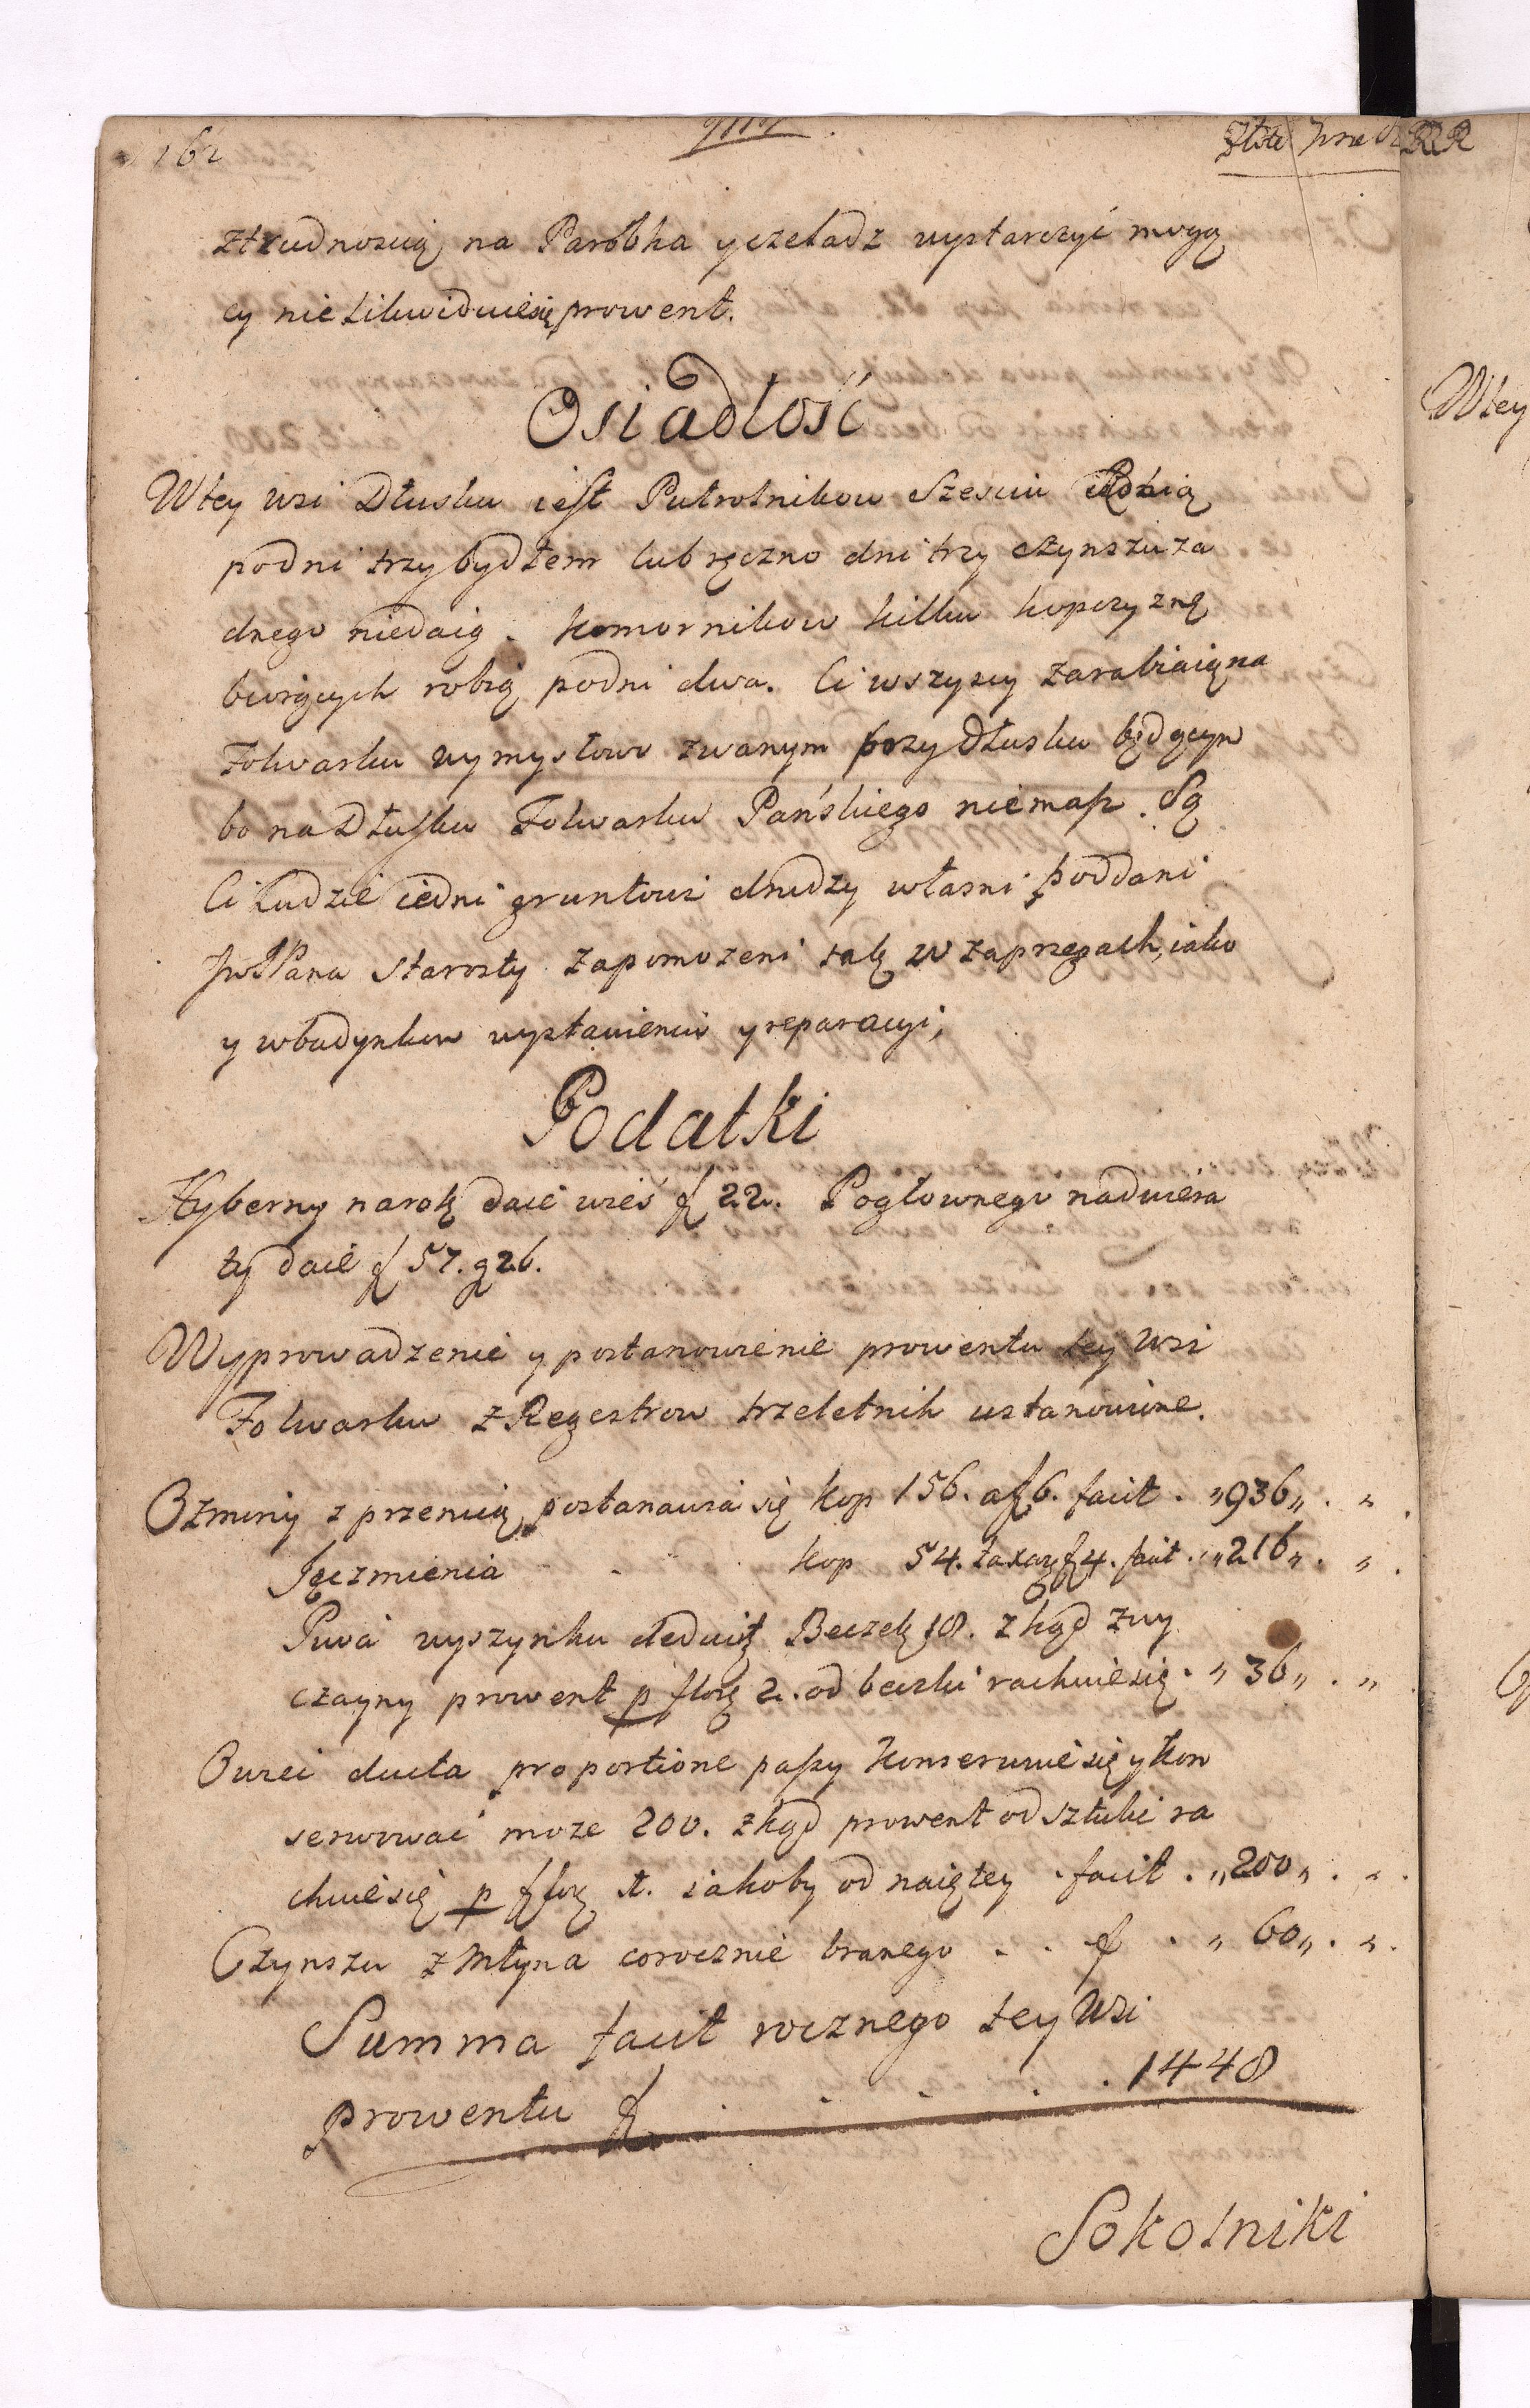 162
Złote
ztrudnoscią na Parobka yczeladz wystarczyć mogą
cy nie Likwiduiesię prowent.
Osiadłość
Wtey wsi Dłusku iest Pułrolnikow Szesciu Robią
podni trzy bydłem lub ręczno dni trzy czynszu za
dnego niedaią. komornikow kilku kopczyznę
biorących robią podni dwa. Ci wszyscy zarabiaią na
Folwarku wymysłowo zwanym przy Dłusku będącym
bo na Dłusku Folwarku Pańskiego niemasz. Są
Ci Ludzie iedni gruntowi drudzy własni poddani
Pana Starosty zapomozeni tak w zaprzęgach, iako
y wbudynkow wystawieniu yreparacyi,
Podatki
Hyberny narok daie wieś f 22. Pogłownego nadwiera
ty daie f 57. g 26.
Wyprowadzenie y postanowienie prowentu tey wsi
Folwarku z Regestrow trzeletnih ustanowione.
Ozminy z przenicą postanawia się kop 156. a f 6. facit . „936„ . „ .
Jęczmienia . . kop 54. taxa f 4. facit . „216„ . „ .
Piwa wyszynku deducit Beczek 18. zkąd zwy
czayny prowent p flor 2. od beczki rachuiesię . „ 36„ . „
Owiec ducta proportione paszy konserwuie się ykon
serwować moze 200. zkąd prowent od sztuki ra
chuiesię p flor 1. iakoby od naiętey . facit . „200„ . „ .
Czynszu z Młyna corocznie branego . . f . „ 60„ . „ .
Summa facit rocznego tey Wsi
prowentu f . . . . . 1448
Sokolniki
Wtey